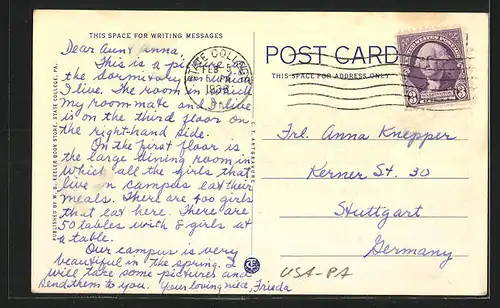 THIS SPACE FOR WRITING MESSAGES
Dear Aunt Anna,
This is a picture of
the dormitory in which
I live. The room in which
my roommate and I live
is on the third floor on
the right-hand side.
On the first floor is
the large dining room in
which all the girls that
live on campus eat their
meals. There are 400 girls
that eat here. There are
50 tables with 8 girls at
a table.
Our campus is very
beautiful in the spring. I
will take some pictures and
send them to you. Your loving niece, Frieda
PUBLISHED BY W. B. KEELER BOOK STORE, STATE COLLEGE, PA.
STATE COLLEGE
FEB 5
PM
1938
PA.
POST CARD
THIS SPACE FOR ADDRESS ONLY
UNITED STATES POSTAGE
3 3
Frl. Anna Knepper
Kerner St. 30
Stuttgart
Germany
USA-PA